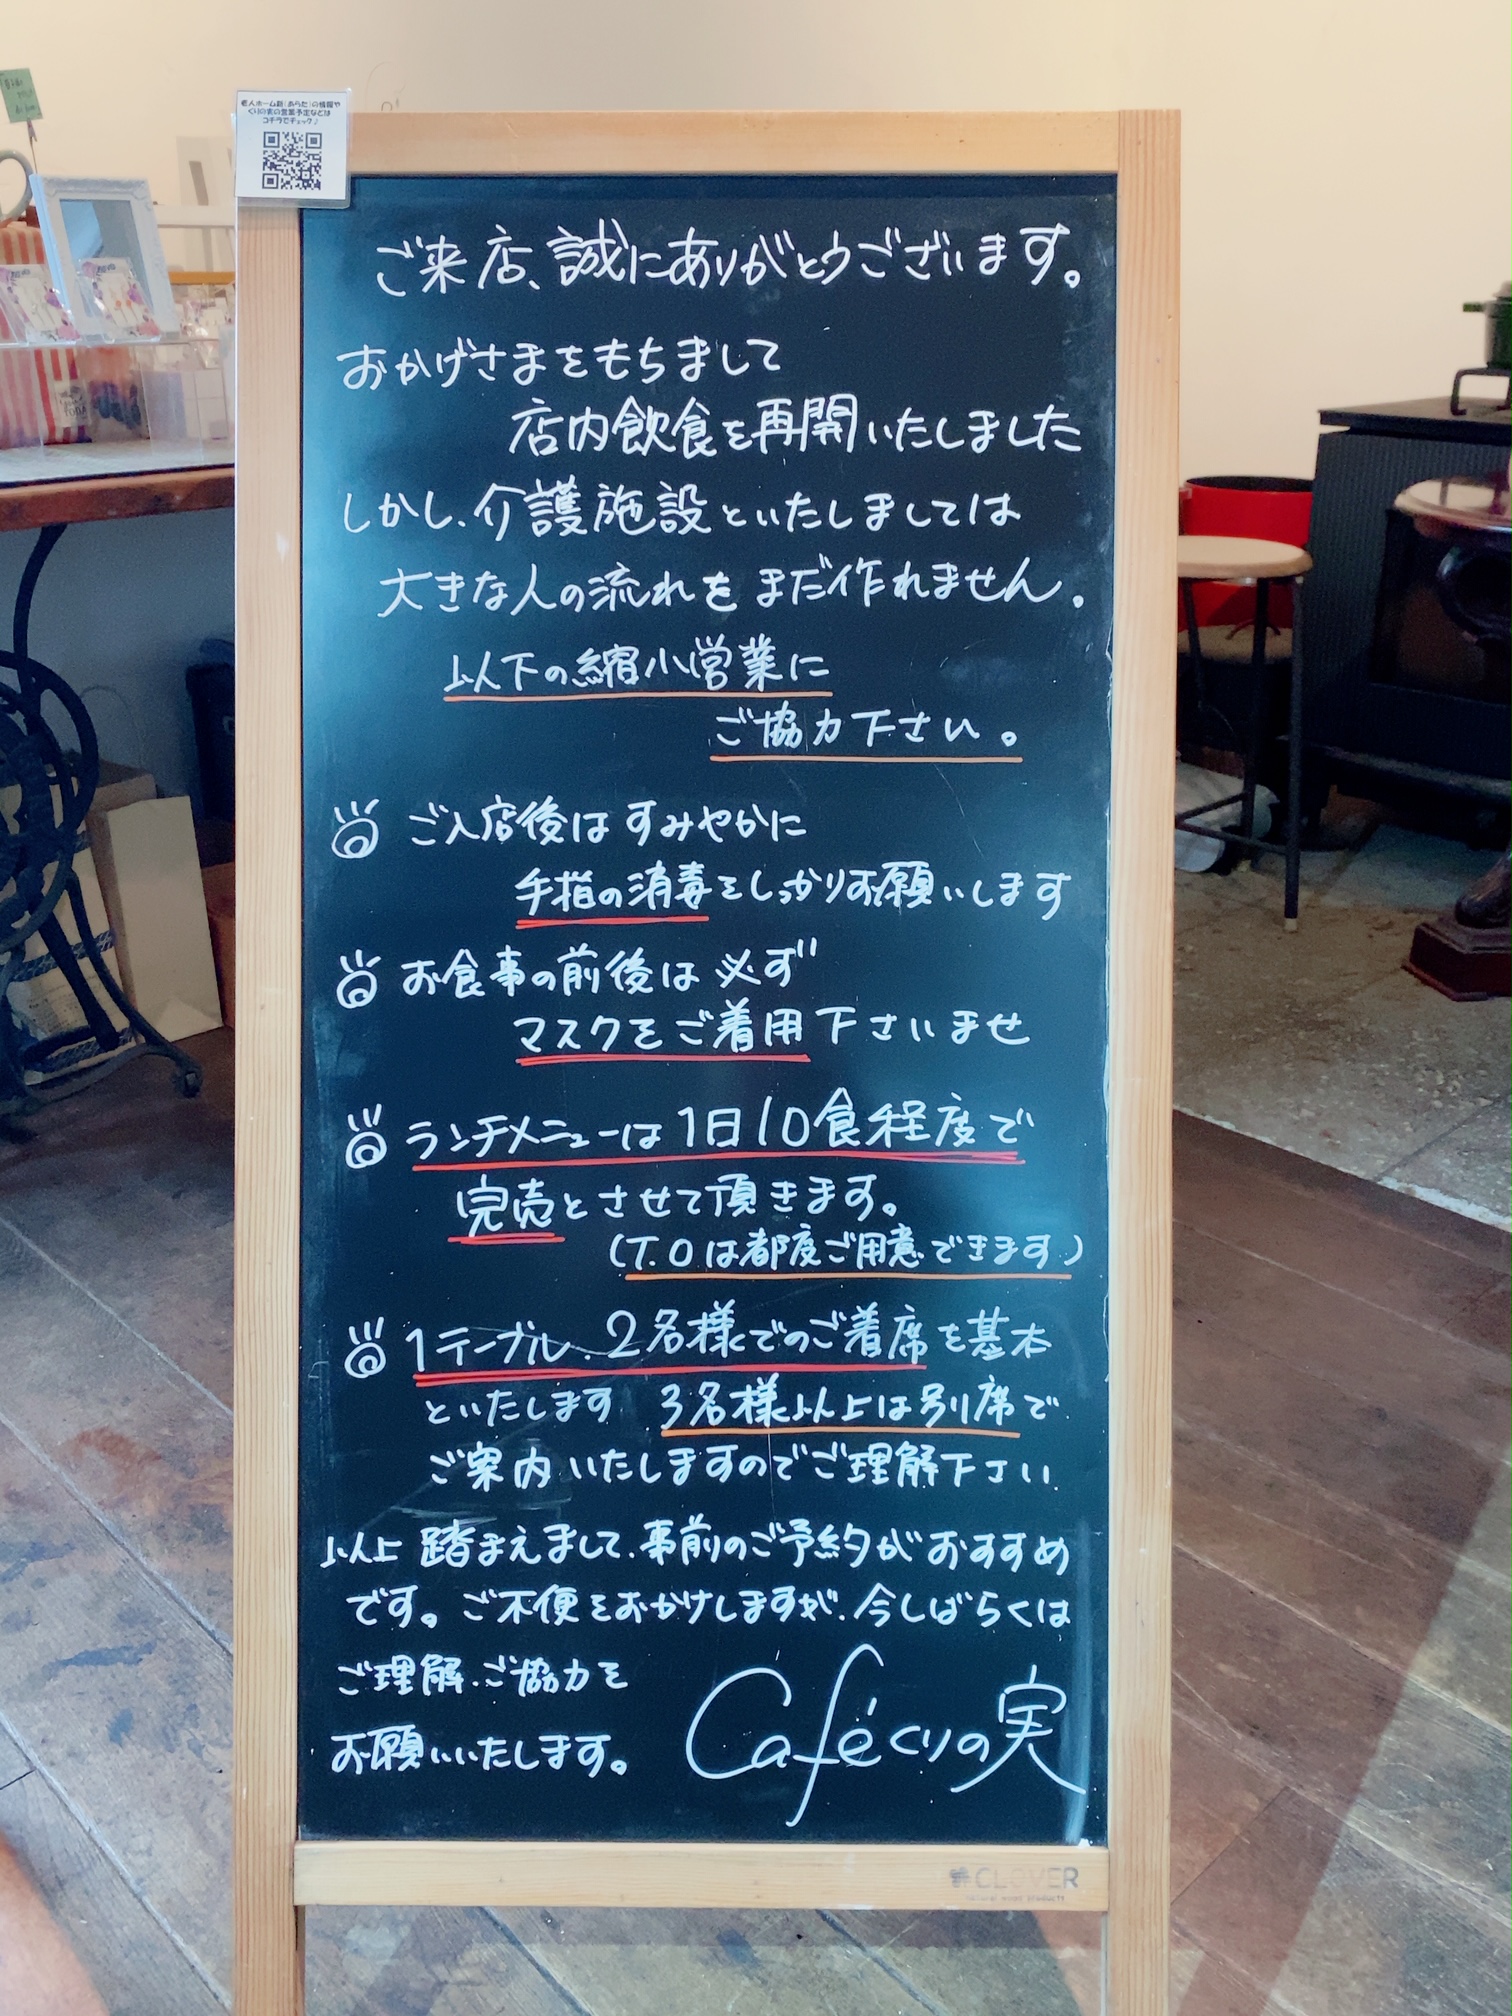 老人ホーム新(あらた)の情報や
くりの実の営業予定などは
コチラでチェック♪
ご来店、誠にありがとうございます。
おかげさまをもちまして
店内飲食を再開いたしました
しかし、介護施設といたしましては
大きな人の流れをまだ作れません。
以下の縮小営業に
ご協力下さい。
ご入店後はすみやかに
手指の消毒をしっかりお願いします
お食事の前後は必ず
マスクをご着用下さいませ
ランチメニューは1日10食程度で
完売とさせて頂きます。
(T.Oは都度ご用意できます)
1テーブル、2名様でのご着席を基本
といたします 3名様以上は別席で
ご案内いたしますのでご理解下さい
以上踏まえまして、事前のご予約がおすすめ
です。ご不便をおかけしますが、今しばらくは
ご理解、ご協力を
お願いいたします。
Caféくりの実
CLOVER